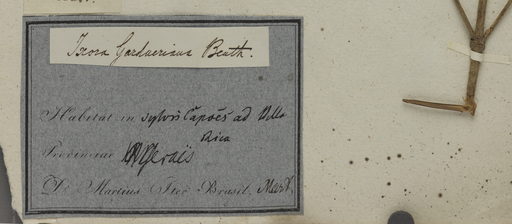 Ixora Gardneriana Benth.
Habitat in sylvis Capões ad Villa
Rica
Provinciae M Geraës
D. Martius Iter Brasil. Mart.